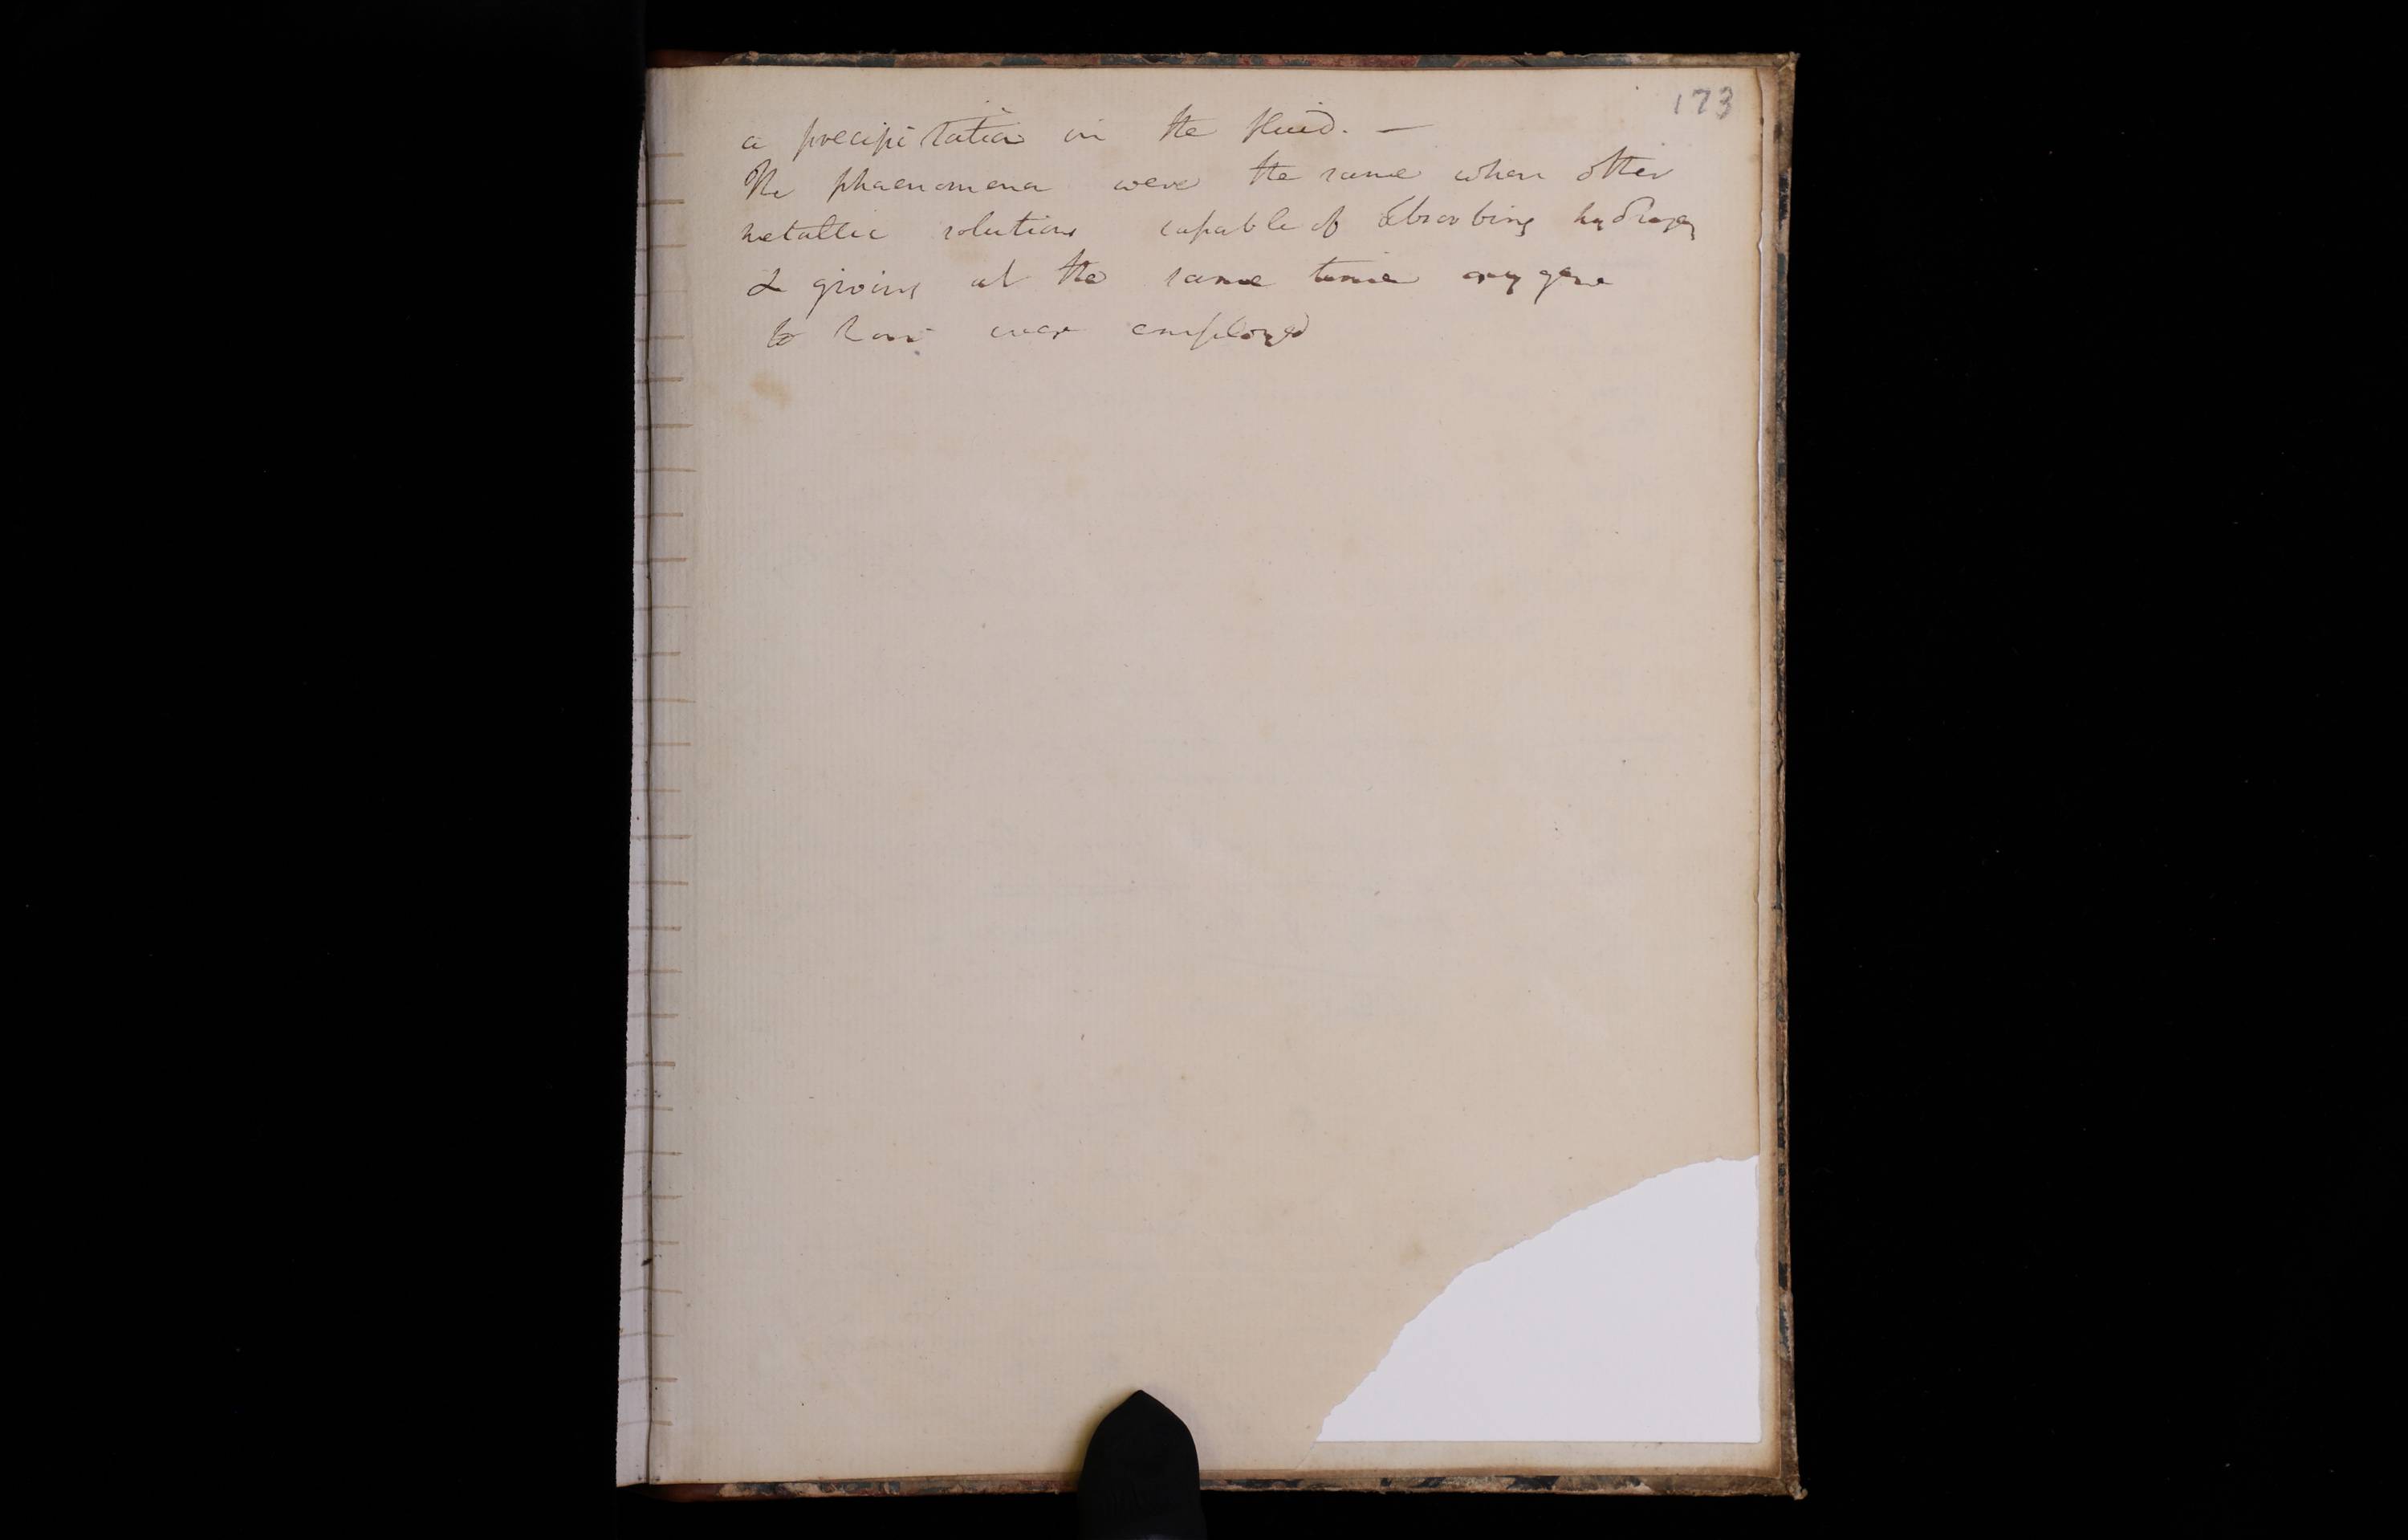 173
a precipitation in the fluid. —
The phaenomena were the same when other
metallic solutions capable of absorbing hydrogen
& giving at the same time oxygene
to iron were employed